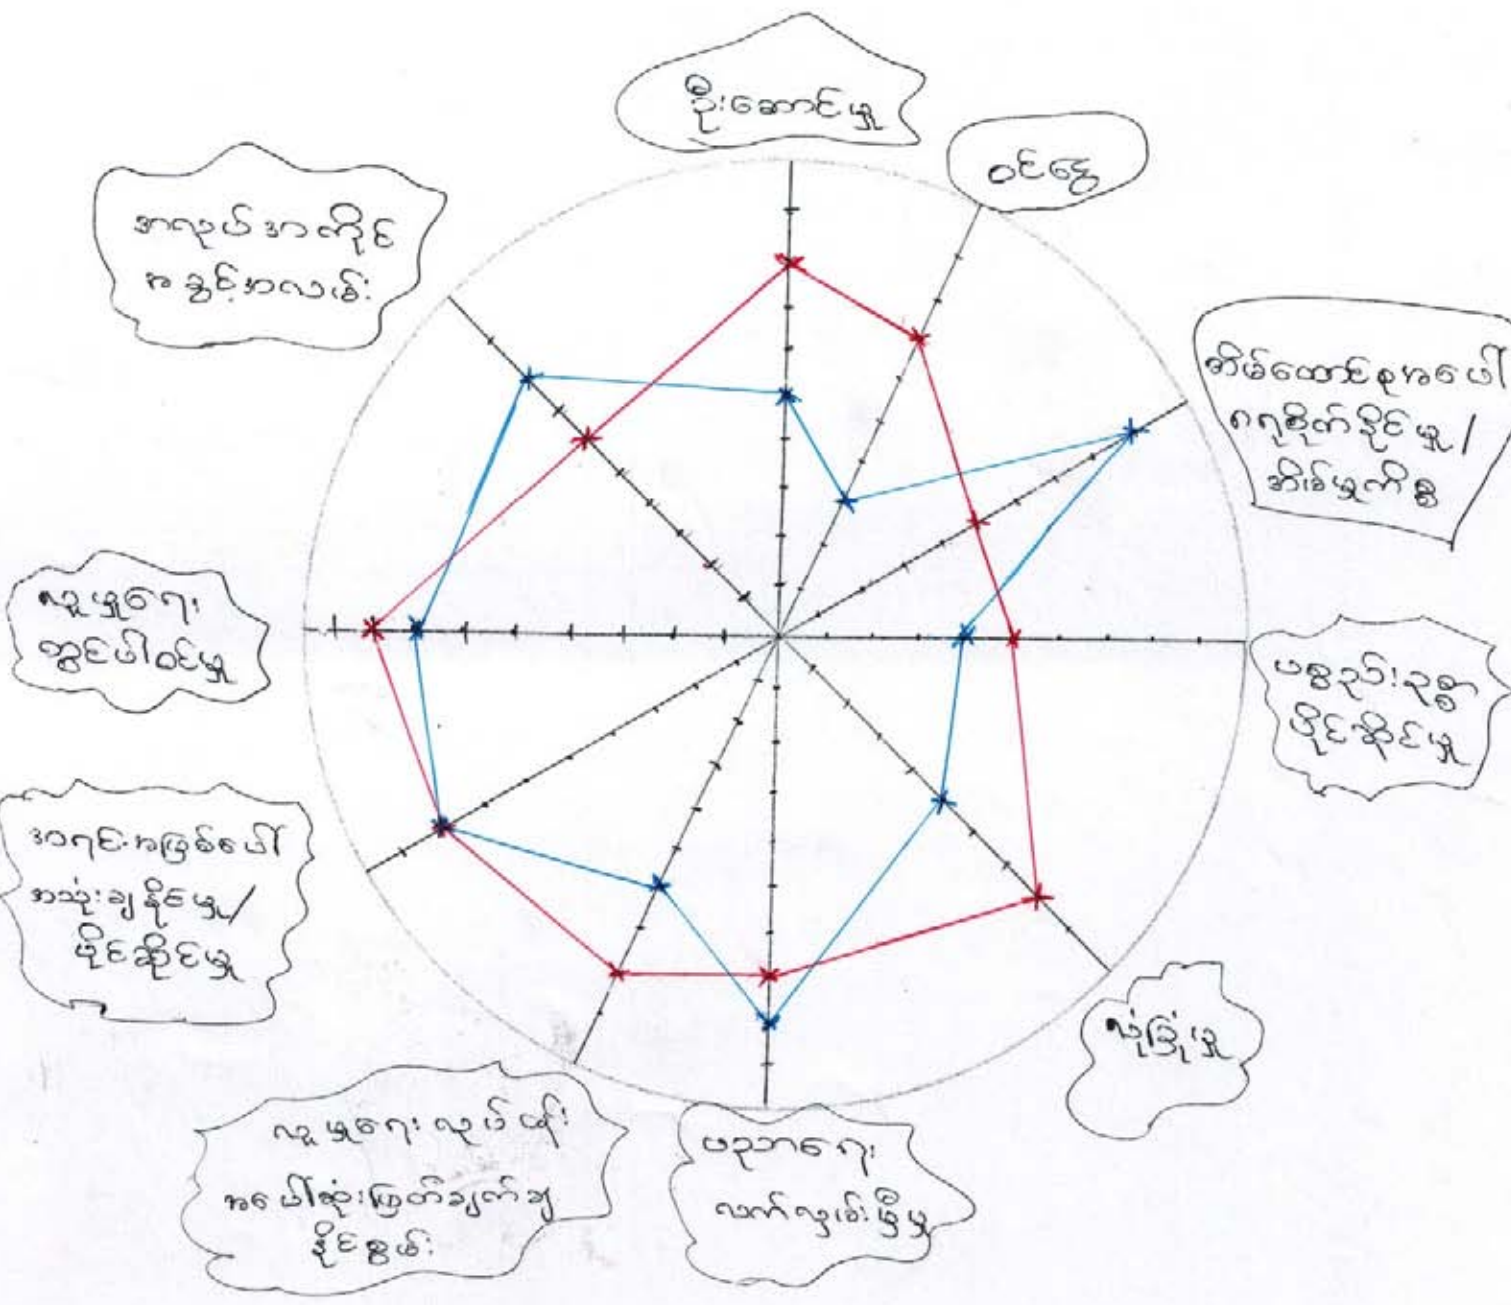 ဦးဆောင်မှု
ဝင်ငွေ
အိမ်ထောင်စုအပေါ်
ဂရုစိုက်နိုင်မှု /
အိမ်မှုကိစ္စ
ပစ္စည်းဥစ္စာ
ပိုင်ဆိုင်မှု
လုံခြုံမှု
ပညာရေး
လက်လှမ်းမှီမှု
လူမှုရေးလုပ်ငန်း
အပေါ်ဆုံးဖြတ်ချက်ချ
နိုင်စွမ်း
အရင်းအမြစ်ပေါ်
အသုံးချနိုင်မှု /
ပိုင်ဆိုင်မှု
လူမှုရေး
တွင်ပါဝင်မှု
အလုပ်အကိုင်
အခွင့်အလမ်း